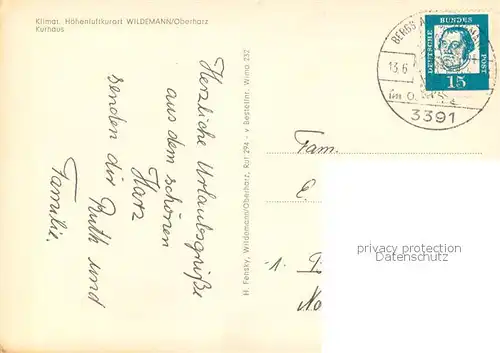 Klimat. Höhenluftkurort WILDEMANN/Oberharz
Kurhaus
Herzliche Urlaubsgrüße
aus dem schönen
Harz
senden dir Ruth und
Familie.
H. Fensky, Wildemann/Oberharz, Ruf 294 - v Bestellnr. Wima 232
DEUTSCHE BUNDES POST
15
13.6
3391
Fam.
E.
privacy protection
Datenschutz